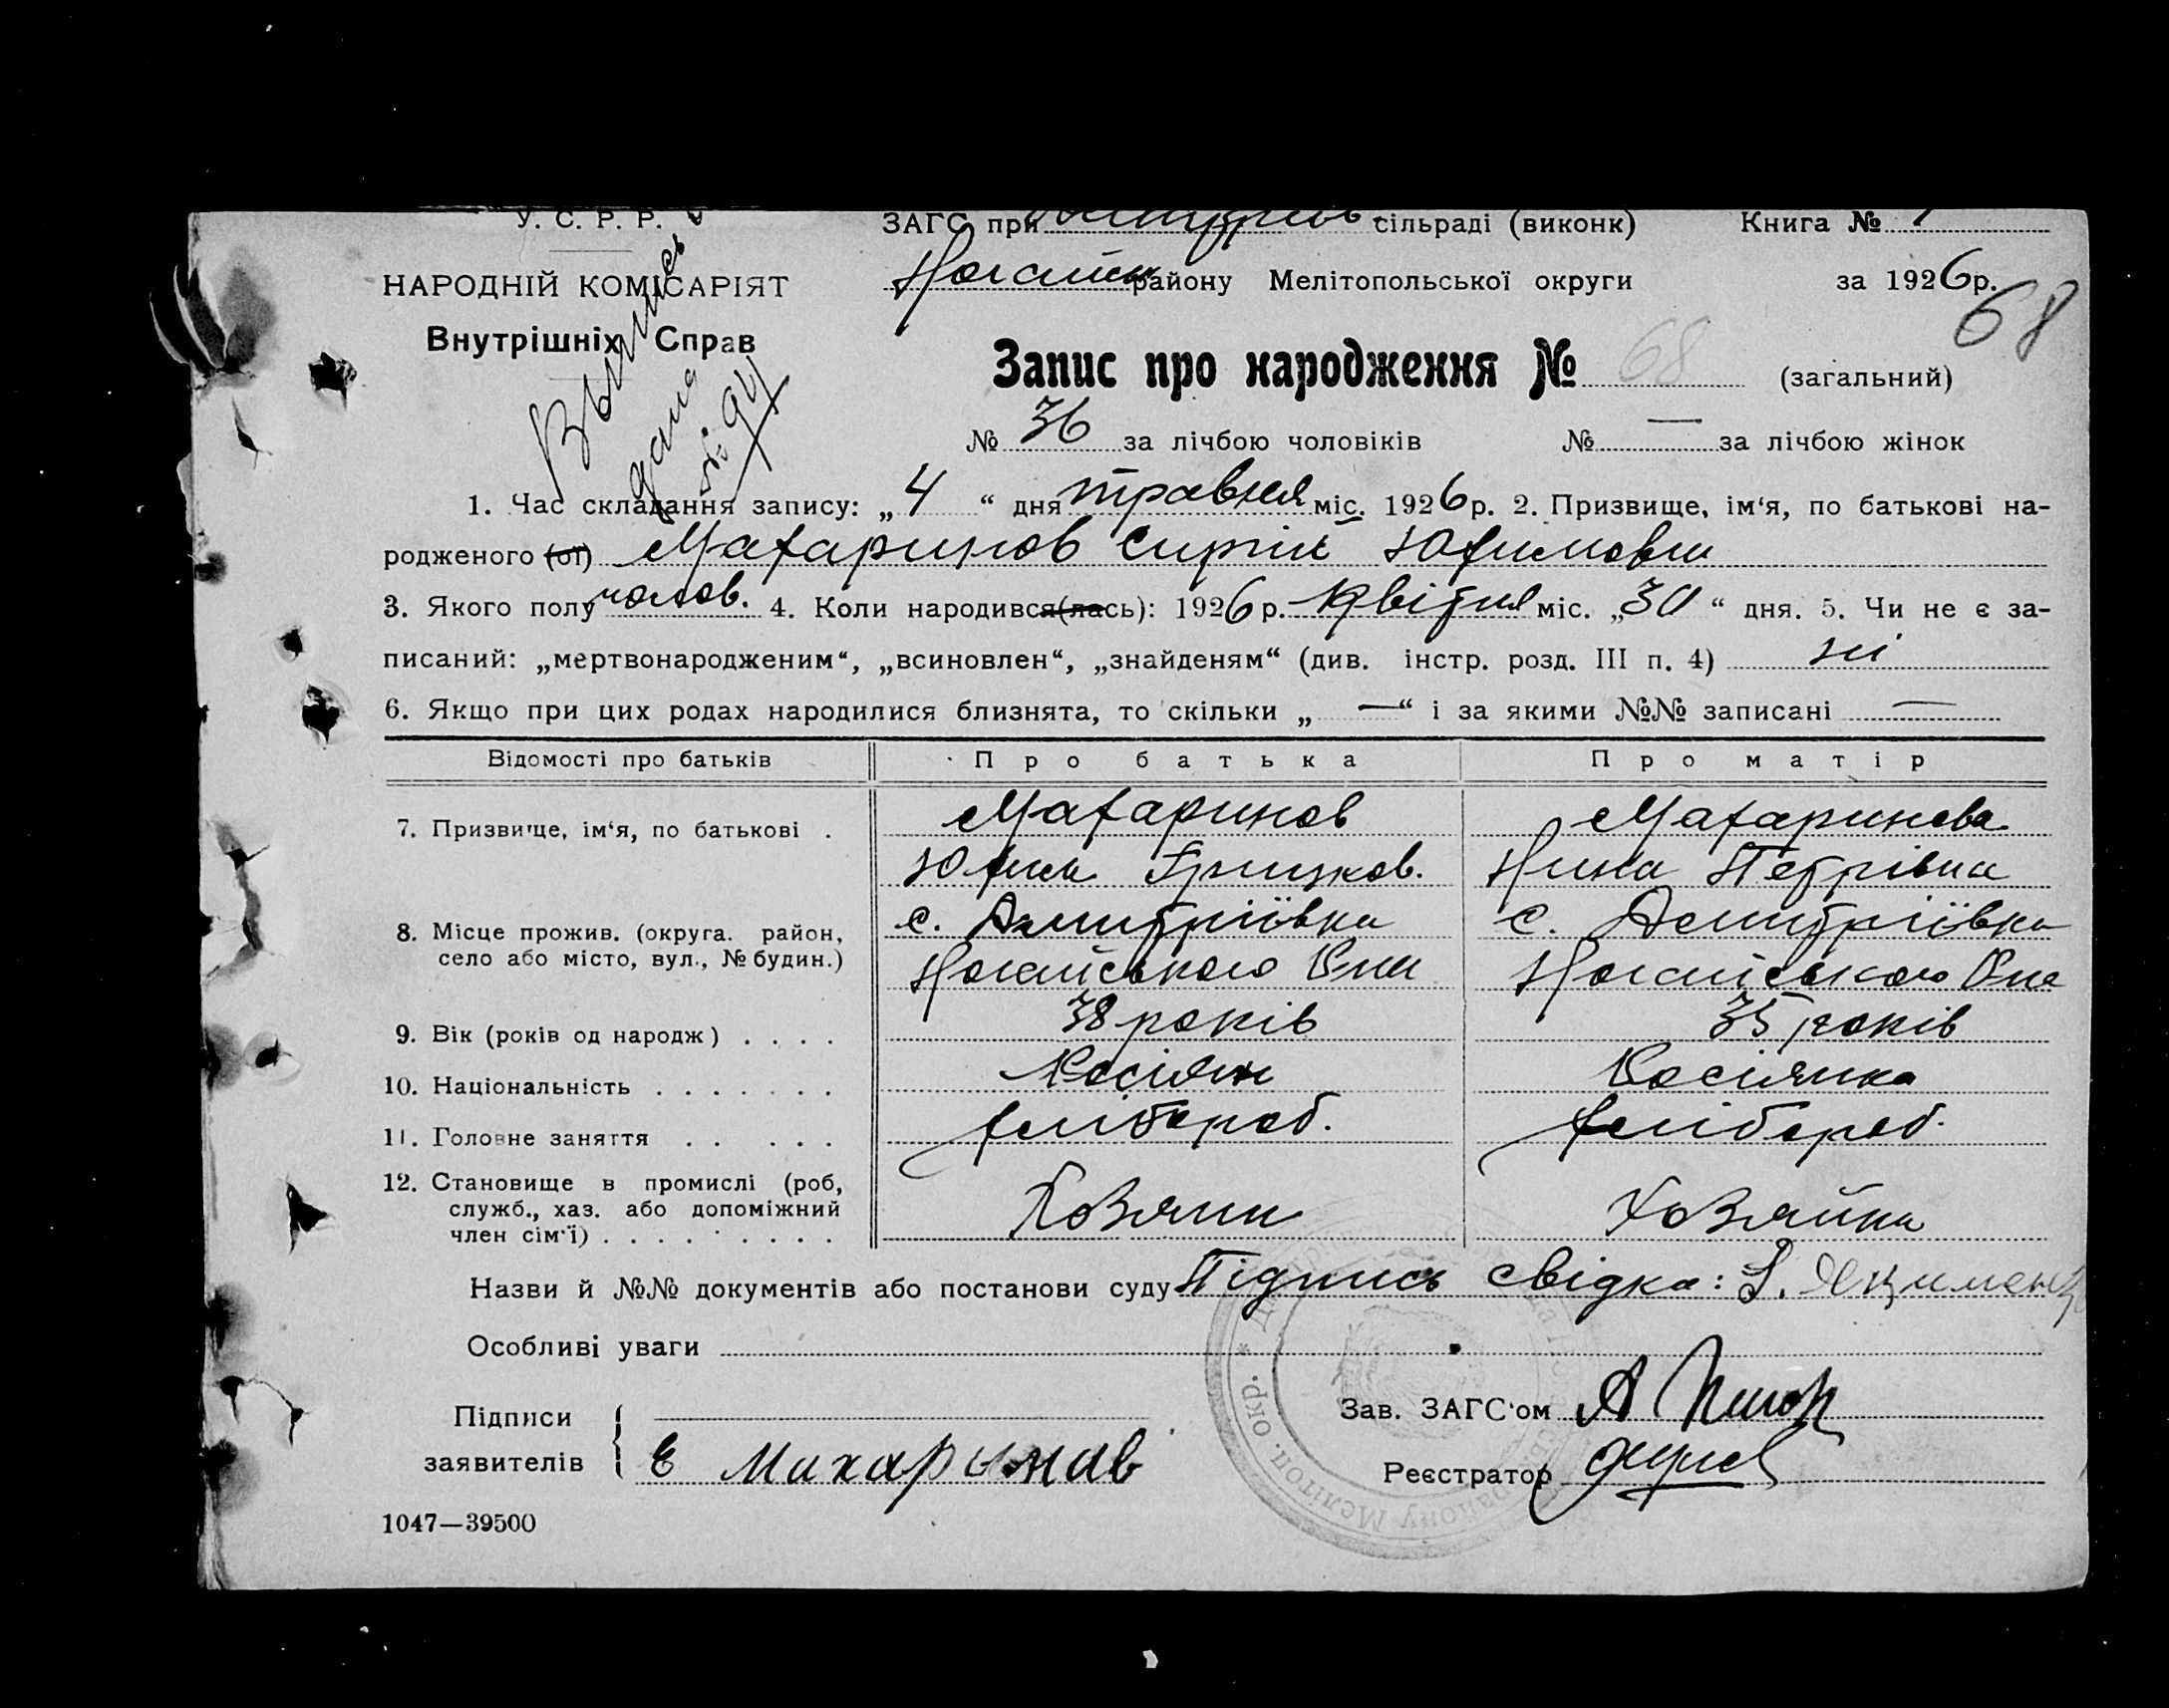 У. С. Р. Р.
НАРОДНІЙ КОМІСАРІЯТ
Внутрішніх Справ
Выпись
дана
ЗАГС при сільраді (виконк) Книга №
Ногайськ району Мелітопольської округи за 1926 р.
68
Запис про народження № 68 (загальний)
№ 36 за лічбою чоловіків № — за лічбою жінок
1. Час складання запису: „4“ дня травня міс. 1926 р. 2. Призвище, ім‘я, по батькові на-
родженого (ої) Махаринов Сиргій Юхимови
3. Якого полу чолов. 4. Коли народився(лась): 1926 р. Квітня міс. „30“ дня. 5. Чи не є за-
писаний: „мертвонародженим“, „всиновлен“, „знайденям“ (див. інстр. розд. III п. 4) ні
6. Якщо при цих родах народилися близнята, то скільки „—“ і за якими №№ записані —
Відомості про батьків Про батька Про матір
7. Призвище, ім‘я, по батькові . Махаринов Махаринова
Юхим Грицков. Нина Петрівна
8. Місце прожив. (округа. район, с. Дмитріївка с. Дмитріївка
село або місто, вул., № будин.) Ногайського Ногайського
9. Вік (років од народж) . . . . 38 років 35 років
10. Національність . . . . . . . Росіян Росіянка
11. Головне заняття . . . . . хлібороб. хлібороб.
12. Становище в промислі (роб,
служб., хаз. або допоміжний
член сім‘ї) . . . . . . . . . Хозяин Хозяйка
Назви й №№ документів або постанови суду Підпись свідка:
Особливі уваги
Підписи Зав. ЗАГС‘ом
заявителів Е Махарынав Реєстратор
1047—39500